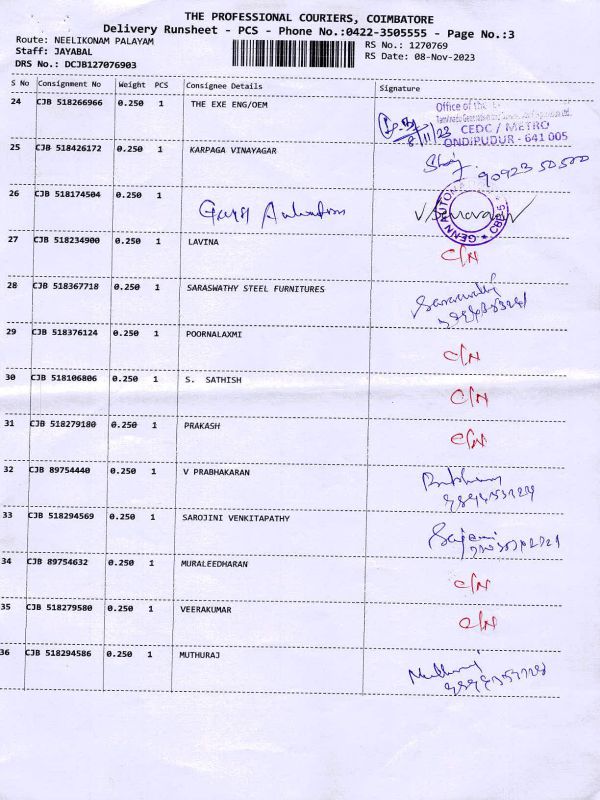 THE PROFESSIONAL COURIERS, COIMBATORE
Delivery Runsheet - PCS - Phone No.:0422-3505555 - Page No.:3
Route: NEELIKONAM PALAYAM RS No.: 1270769
Staff: JAYABAL RS Date: 08-Nov-2023
DRS No.: DCJB127076903
S No Consignment No Weight PCS Consignee Details Signature
24 CJB 518266966 0.250 1 THE EXE ENG/OEM
Office of the
8/11/23 CEDC / METRO
ONDIPUDUR - 641 005
25 CJB 518426172 0.250 1 KARPAGA VINAYAGAR
90923 50500
26 CJB 518174504 0.250 1
27 CJB 518234900 0.250 1 LAVINA C/N
28 CJB 518367718 0.250 1 SARASWATHY STEEL FURNITURES Saraswathy
29 CJB 518376124 0.250 1 POORNALAXMI C/N
30 CJB 518106806 0.250 1 S. SATHISH C/N
31 CJB 518279180 0.250 1 PRAKASH C/N
32 CJB 89754440 0.250 1 V PRABHAKARAN
33 CJB 518294569 0.250 1 SAROJINI VENKITAPATHY
34 CJB 89754632 0.250 1 MURALEEDHARAN C/N
35 CJB 518279580 0.250 1 VEERAKUMAR C/N
36 CJB 518294586 0.250 1 MUTHURAJ